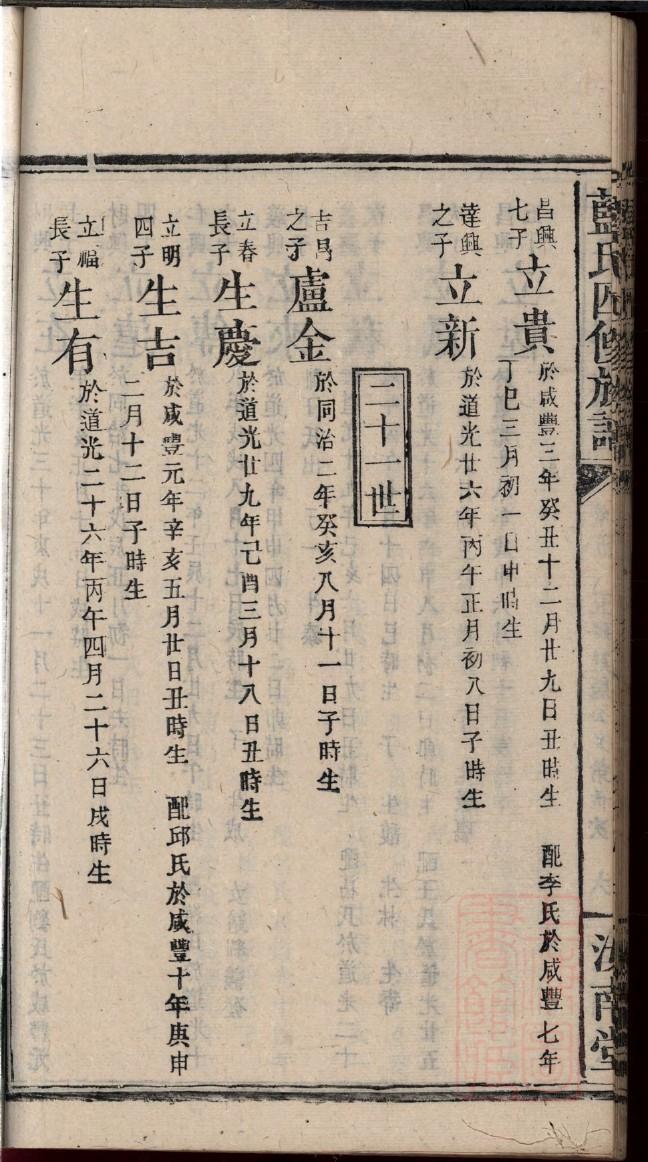 藍氏四修族譜
汝南堂
昌興
七子
立貴
於咸豐三年癸丑十二月廿九日丑時生 配李氏於咸豐七年
丁巳三月初一日申時生
達興
之子
立新
於道光廿六年丙午正月初八日子時生
二十一世
吉昌
之子
盧金
於同治二年癸亥八月十一日子時生
立春
長子
生慶
於道光廿九年己酉三月十八日丑時生
立明
四子
生吉
於咸豐元年辛亥五月廿日丑時生 配邱氏於咸豐十年庚申
二月十二日子時生
立福
長子
生有
於道光二十六年丙午四月二十六日戌時生